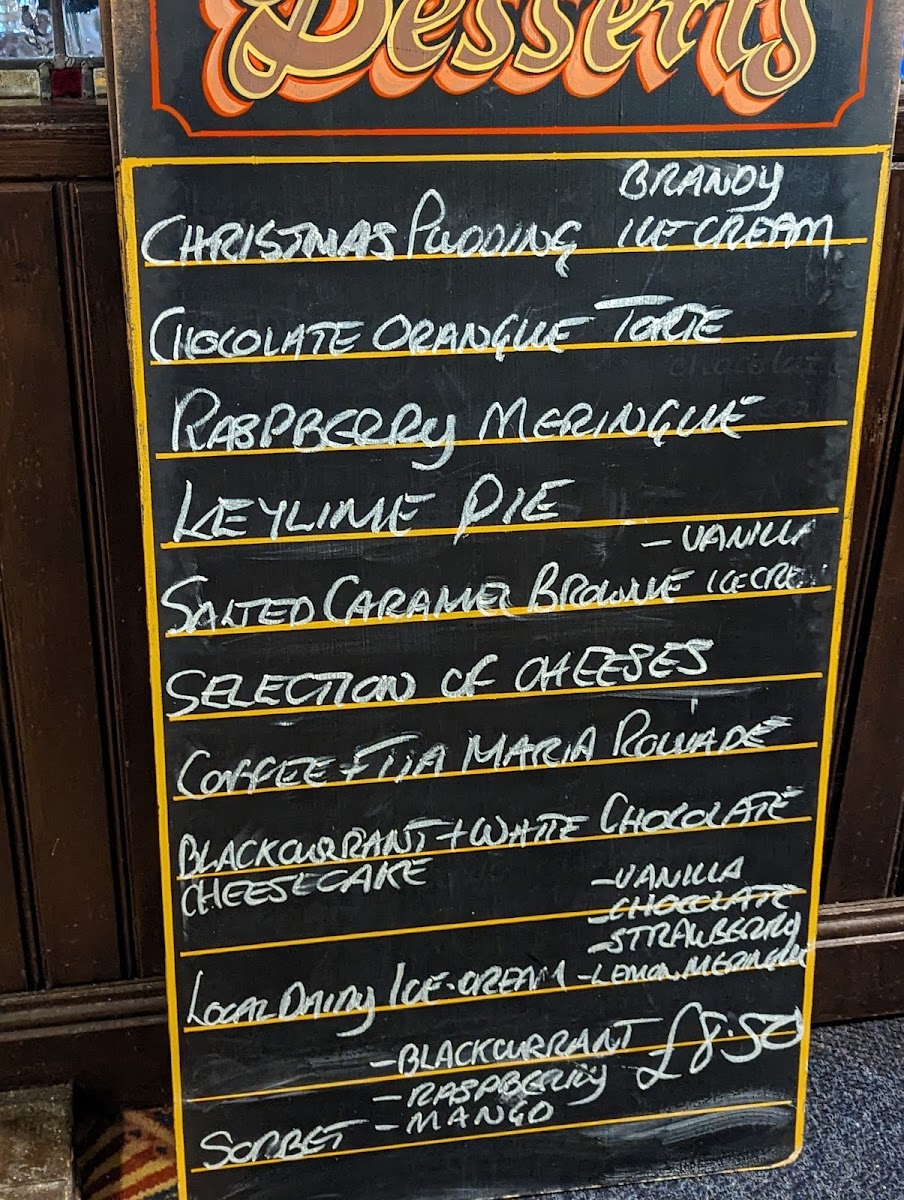 Desserts
BRANDY
CHRISTMAS PUDDING ICE CREAM
CHOCOLATE ORANGUE TORTE
chocolate
RASPBERRY MERINGUE
KEYLIME PIE
- VANILLA
SALTED CARAMEL BROWNIE ICE CRE
SELECTION OF CHEESES
COFFEE + TIA MARIA ROULADE
BLACKCURRANT + WHITE CHOCOLATE
CHEESECAKE
- VANILLA
- CHOCOLATE
- STRAWBERRY
LOCAL DAIRY ICE-CREAM - LEMON MERINGUE
- BLACKCURRANT £8.50
- RASPBERRY
SORBET - MANGO